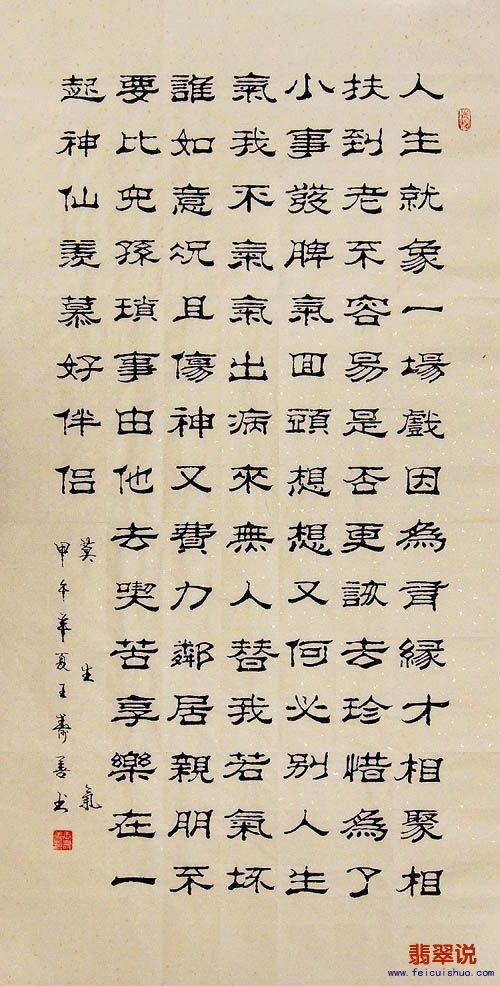 人生就象一場戲因為有緣才相聚相
扶到老不容易是否更該去珍惜為了
小事發脾氣回頭想想又何必別人生
氣我不氣氣出病來無人替我若氣坏
誰如意況且傷神又費力鄰居親朋不
要比兒孫瑣事由他去喫苦享樂在一
起神仙羨慕好伴侶
莫生氣
甲午夏王壽善书
翡翠说
www.feicuishuo.com